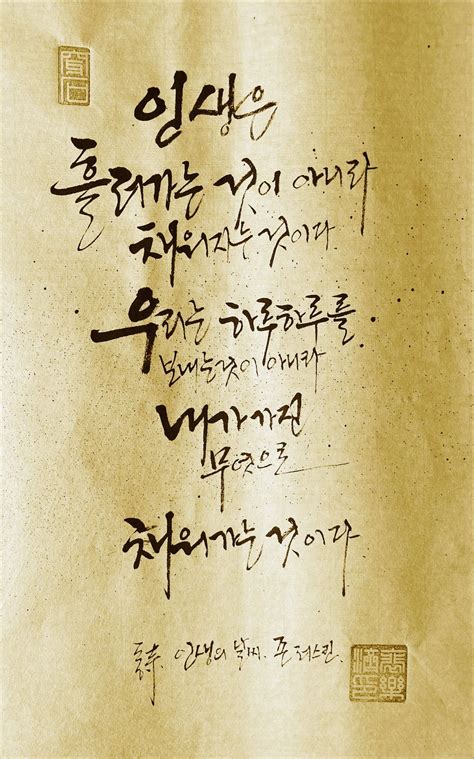 인생은
흘러가는 것이 아니라
채워지는 것이다
우리는 하루하루를
보내는것이 아니라
내가 가진
무엇으로
채워가는 것이다
인생의 날씨. 존 러스킨.